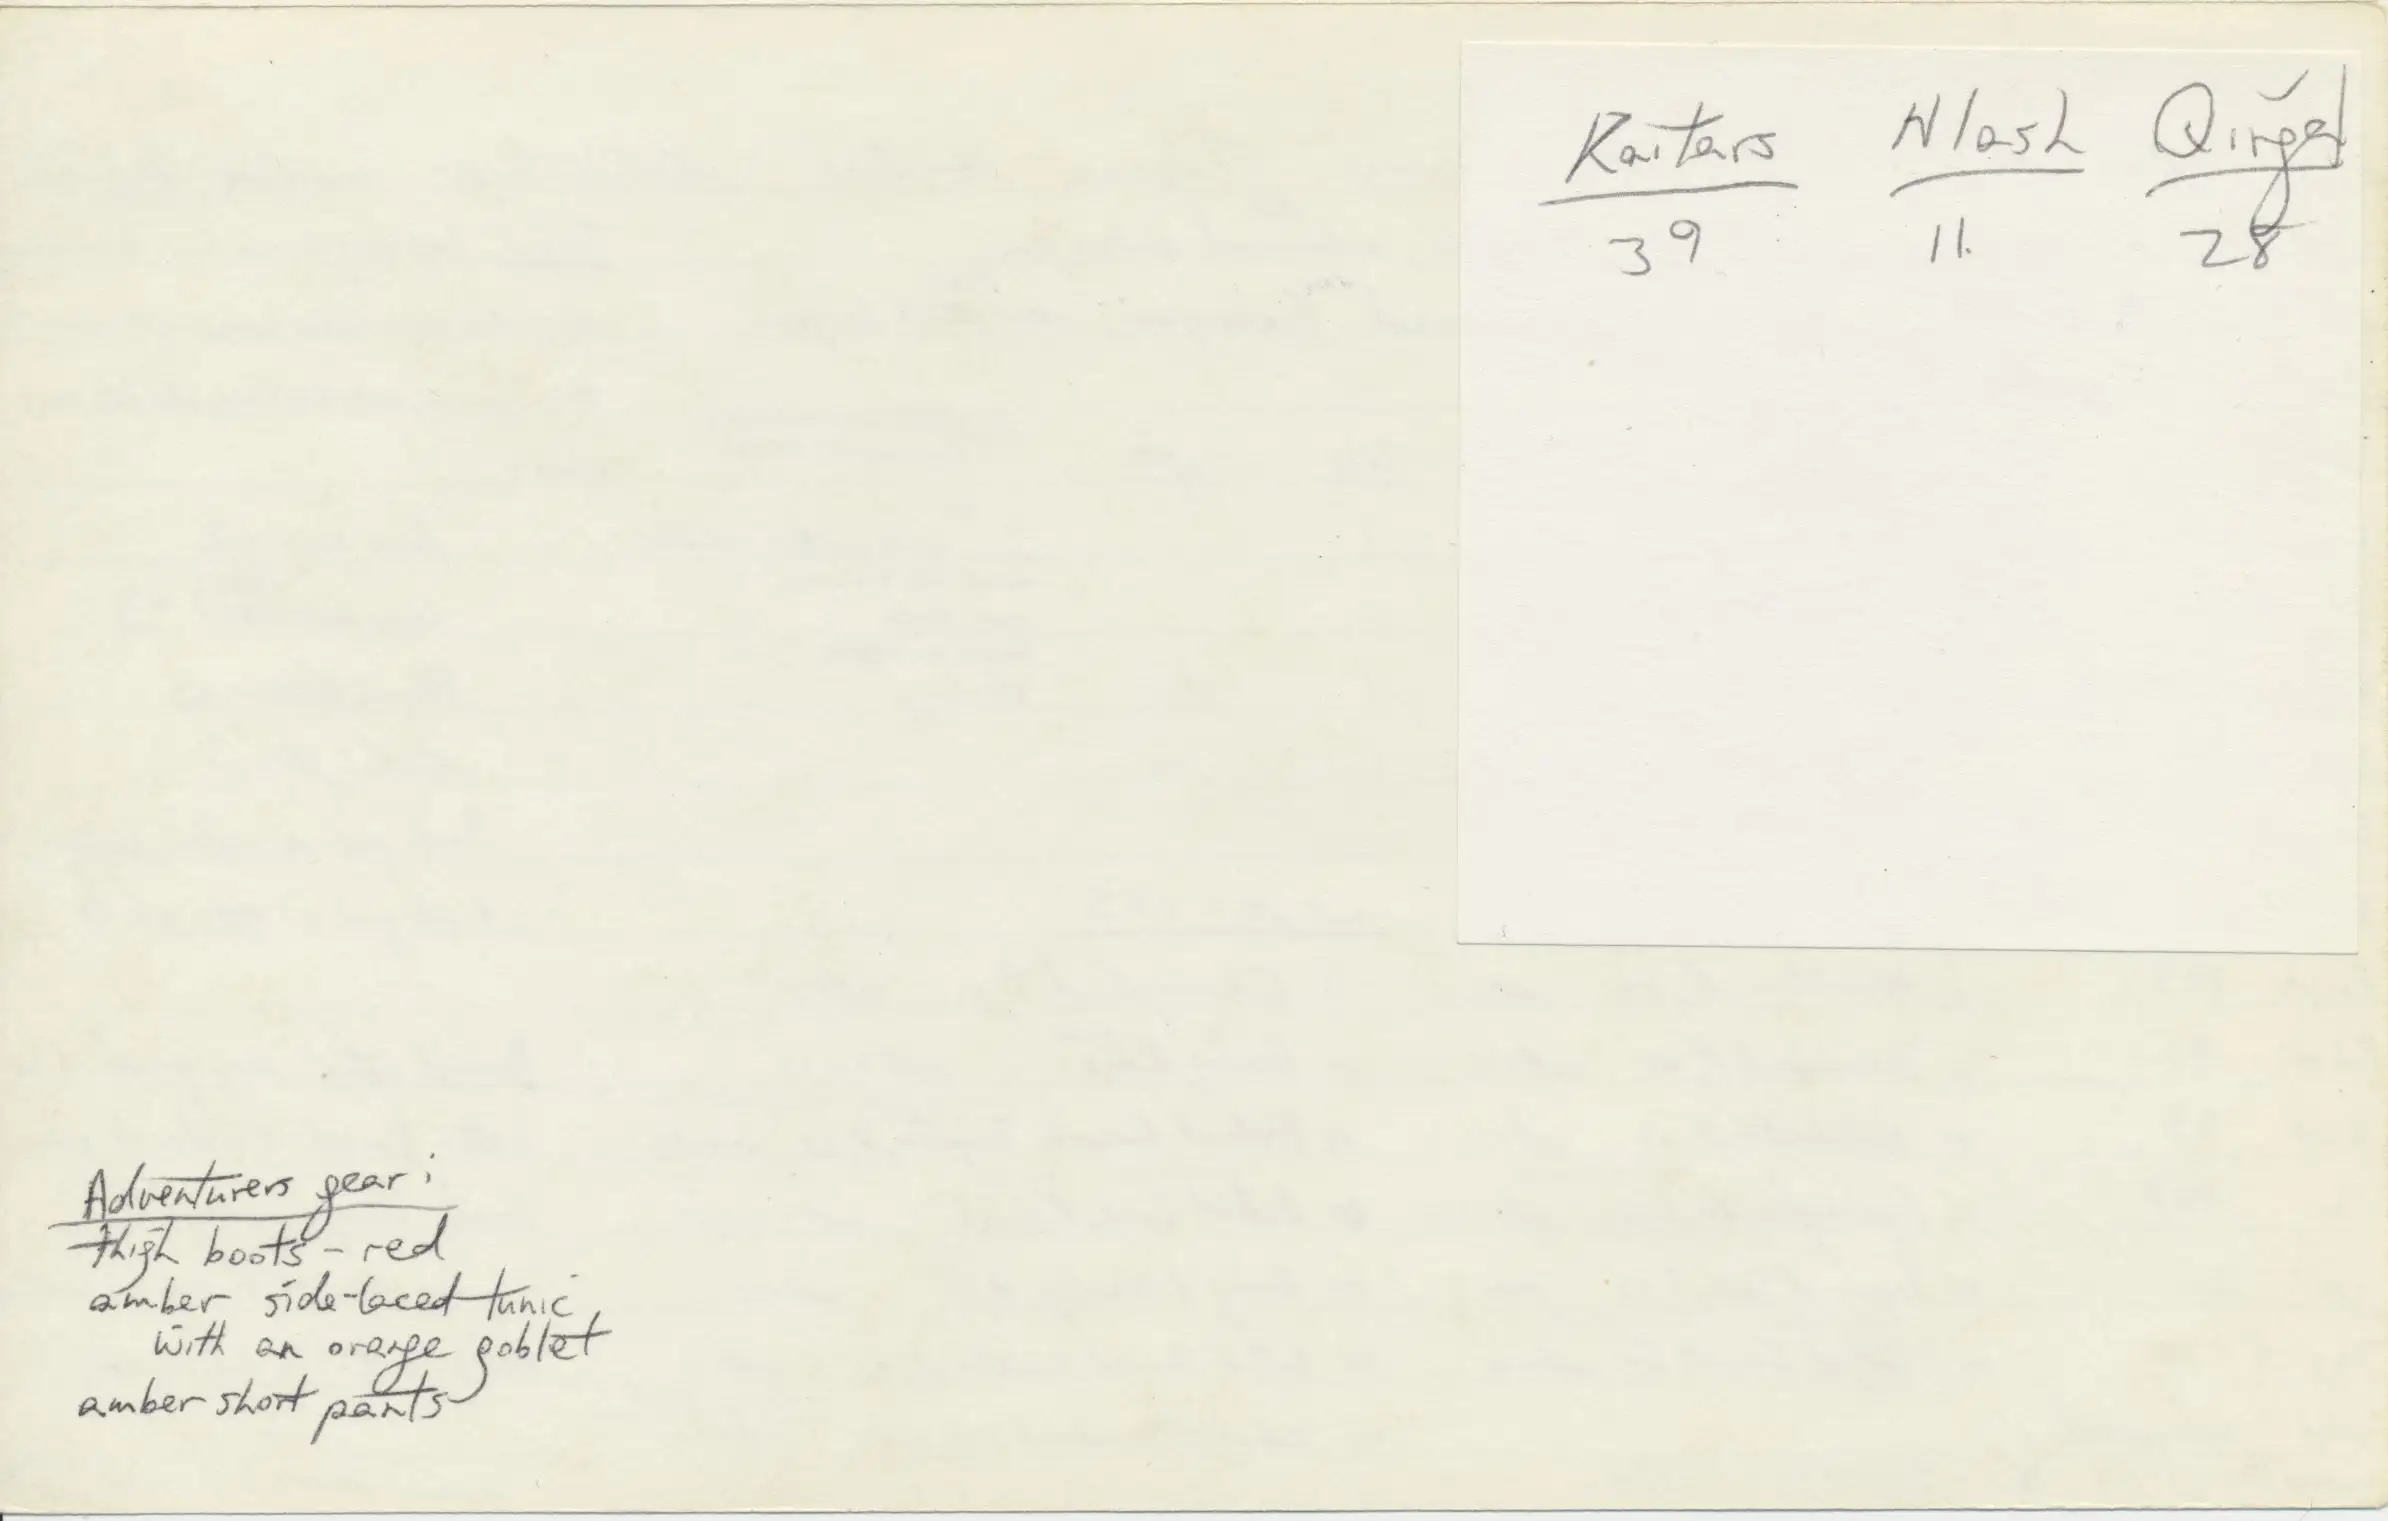 Kaitars Hlash Qirğal
39 11. 28
Adventurers gear:
thigh boots - red
amber side-laced tunic
with an orange goblet
amber short pants